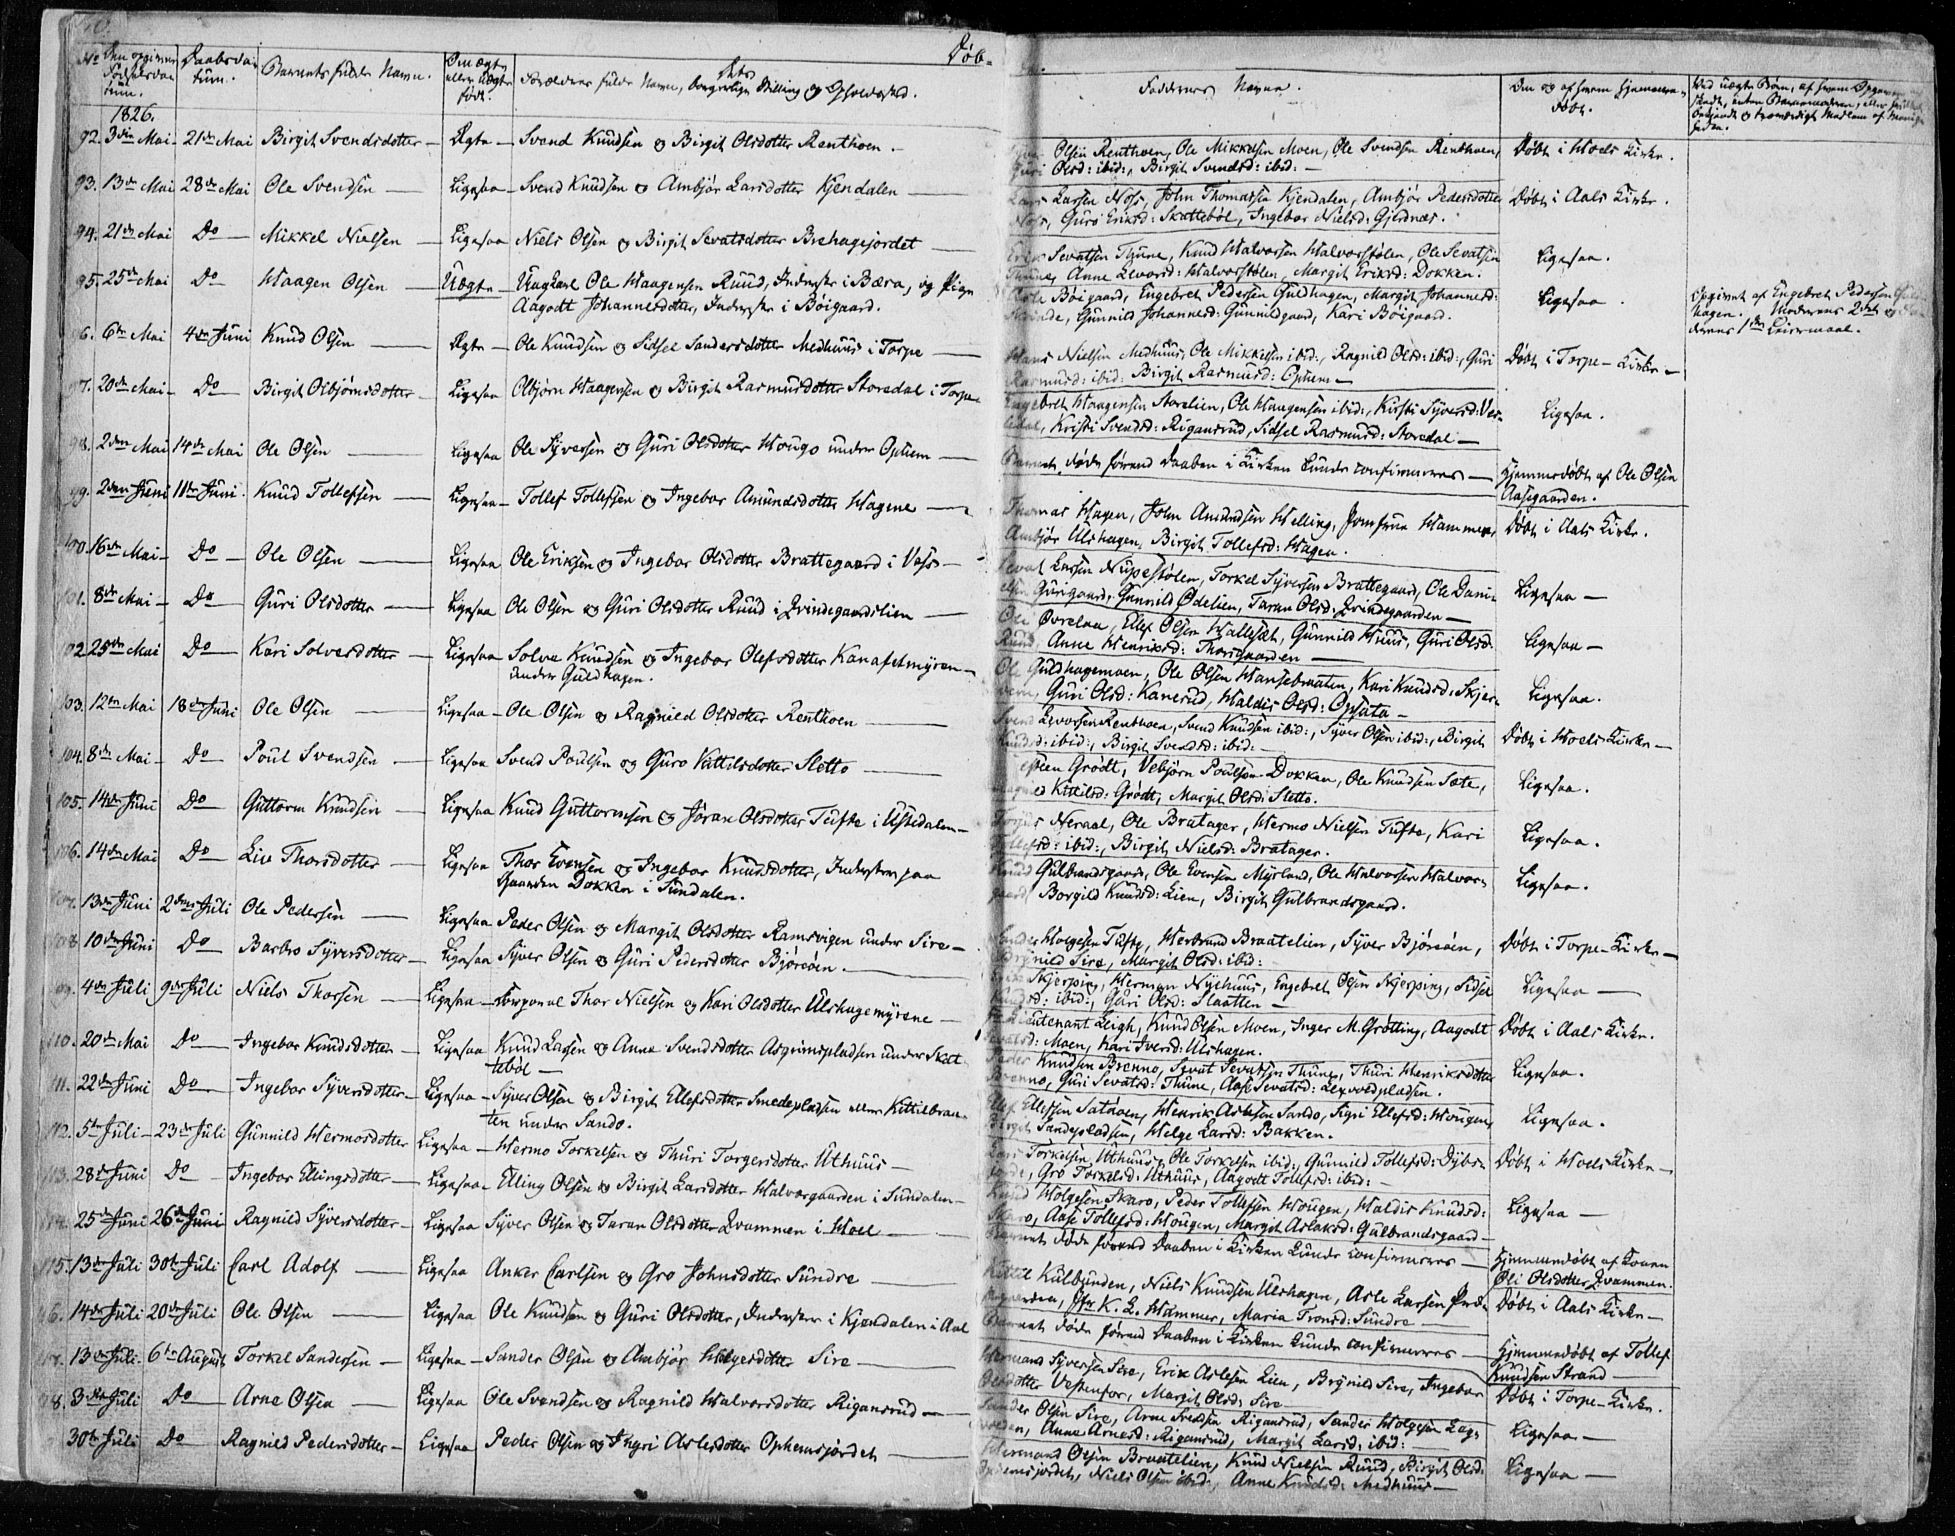 No Den opgivne Fødselsdatum. Daabsdatum. Barnets fulde Navn. Om ægte eller uægte født. Forældrenes fulde Navn, borgerlige Stilling og Opholdssted. Døb-
Faddernes Navne. Om og af hvem hjemmedøbt.
1826.
92. 3die Mai 21de Mai Birgit Svendsdotter Ægte Svend Knudsen og Birgit Olsdotter Renthoen.
Olsen Renthoen, Ole Mikkelsen Moen, Ole Svendsen Renthoen, Døbt i Hoels Kirke.
Guri Olsd: ibid:, Birgit Svendsd: ibid:
93. 13de Mai 28de Mai Ole Svendsen Ligesaa Svend Knudsen og Ambjør Larsdotter Kjendalen
Lars Larsen Noss, John Thomassen Kjendalen, Ambjør Pedersdotter Døbt i Aals Kirke.
Noss, Guro Eriksd: Skattebøl, Ingebor Nielsd: Gjerdnæs.
94. 21de Mai Do Mikkel Nielsen Ligesaa Niels Olsen og Birgit Sevatsdotter Brehagejordet
Erik Sevatsen Thune, Knud Halvorsen Halvorstølen, Ole Sevatsen Ligesaa.
Thune, Anne Levorsd: Halvorstølen, Margit Eriksd: Dokken.
95. 25de Mai Do Haagen Olsen Uægte Ungkarl Ole Haagensen Ruud, Inderster i Bæra, og Pige
Aagodt Johannesdotter, Inderster i Böigaard.
Böigaard, Engebret Pedersen Guldhagen, Margit Johannesd: Ligesaa.
Gunnild Johannesd: Gunnildgaard, Kari Böigaard.
Opgivet af Engebret Pedersen Guldhagen. Moderens 2det og Faderens 1ste Leiermaal.
96. 6te Mai 4de Juni Knud Olsen Ægte Ole Knudsen og Sidsel Sandersdotter Medhuus i Torpe
Hans Nielsen Medhuus, Ole Mikkelsen ibid:, Ragnild Olsd: ibid:, Guri Døbt i Torpe-Kirke
Rasmusd: ibid: Birgit Rasmusd: Ophem
97. 20de Mai Do Birgit Olbjørnsdotter Ligesaa Olbjørn Haagensen og Birgit Rasmusdotter Storedal i Torpe
Engebret Haagensen Storelien, Ole Haagensen ibid:, Kirsti Syversd: Ves- Ligesaa.
ledal, Kristi Svendsd: Rigansrud, Sidsel Rasmusd: Storedal
98. 2den Mai 14de Mai Ole Olsen Ligesaa Ole Syversen og Guri Olsdotter Hougo under Ophem
Barnet døde førend Daaben i Kirken kunde confirmeres Hjemmedøbt af Ole Olsen
Aasegaarden.
99. 2den Juni 11te Juni Knud Tollefsen Ligesaa Tollef Tollefsen og Ingebor Amundsdotter Hagene
Thomas Hagen, John Amundsen Helling, Jomfrue Hammer, Døbt i Aals Kirke.
Ambjør Ulshagen, Birgit Tollefsd: Hagen.
100. 16de Mai Do Ole Olsen Ligesaa Ole Eriksen og Ingebor Olsdotter Brattegaard i Vass
Sevat Larsen Nupestølen, Torkel Syversen Brattegaard, Ole Dani- Ligesaa
elsen Gurigaard, Gunnild Ødelien, Taran Olsd: Qvindegaarden
101. 8de Mai Do Guri Olsdotter Ligesaa Ole Olsen og Guri Olsdotter Ruud i Qvindegaardslien
Ole Øvrelaa, Ellef Olsen Hallesæt, Gunnild Huus, Guri Olsd: Ligesaa
Ruud, Anne Henriksd: Thorsgaarden
102. 25de Mai Do Kari Solvesdotter Ligesaa Solve Knudsen og Ingebor Olefsdotter Kanafelmyren
under Guldhagen.
Ole Guldhagemoen, Ole Olsen Hansebraaten, Kari Knudsd: Skjer- Ligesaa.
vem, Guri Olsd: Kanerud, Haldis Olsd: Opsata
103. 12te Mai 18de Juni Ole Olsen Ligesaa Ole Olsen og Ragnild Olsdotter Renthoen
Svend Levorsen Renthoen, Svend Knudsen ibid:, Syver Olsen ibid:, Birgit Døbt i Hoels Kirke
Knudsd: ibid:, Birgit Svendsd: ibid:
104. 8de Mai Do Poul Svendsen Ligesaa Svend Poulsen og Guro Kittilsdotter Sletto
Grødt, Vebjørn Poulsen Dokken, Ole Knudsen Sæte, Ligesaa.
Kittilsd: Grødt, Margit Olsd: Sletto.
105. 14de Juni Do Guttorm Knudsen Ligesaa Knud Guttormsen og Jøran Olsdotter Tufte i Ustedalen
Neraal, Ole Bratager, Hermo Nielsen Tufte, Kari Ligesaa.
Tollefsd: ibid:, Birgit Nielsd: Bratager.
106. 14de Mai Do Liv Thorsdotter Ligesaa Thor Evensen og Ingebor Knudsdotter, Inderster paa
Gaarden Dokken i Sundalen.
Knud Gulbrandsgaard, Ole Evensen Myrland, Ole Halvorsen Halvor- Ligesaa.
gaard, Borgild Knudsd: Lien, Birgit Gulbrandsgaard.
107. 13de Juni 2den Juli Ole Pedersen Ligesaa Peder Olsen og Margit Olsdotter Ramsvigen under Sire
Sander Holgesen Tufte, Herbrand Braatelien, Syver Bjøreøen, Døbt i Torpe-Kirke
Brynild Sire, Margit Olsd: ibid:
108. 10de Juni Do Barbro Syversdotter Ligesaa Syver Olsen og Guri Pedersdotter Bjøreøen.
Skjerping, Herman Nyehuus, Engebret Olsen Skjerping, Sidsel Ligesaa
Knudsd: ibid:, Guri Olsd: Slaatten
109. 4de Juli 9de Juli Niels Thorsen Ligesaa Korporal Thor Nielsen og Kari Olsdotter Ulshagemyrene
Lieutenant Leigh, Knud Olsen Moen, Inger M. Grøtting, Aagodt Døbt i Aals Kirke.
Sevatsd: Moen, Kari Iversd: Ulshagen.
110. 20de Mai Do Ingebor Knudsdotter Ligesaa Knud Larsen og Anne Svendsdotter Asgrimspladsen under Skat-
tebøl
Peder Knudsen Brenno, Sevat Sevatsen Thune, Thuri Henriksdotter Ligesaa.
Brenno, Guri Sevatsd: Thune, Aase Sevatsd: Lexvoldpladsen.
111. 22de Juni Do Ingebor Syversdotter Ligesaa Syver Olsen og Birgit Ellefsdotter Smedepladsen eller Kittilbraa-
ten under Sando.
Ellef Ellefsen Sathoen, Henrik Aslesen Sando, Sigri Ellefsd: Hougen, Ligesaa.
Birgit Sandepladsen, Helge Larsd: Bakken.
112. 5te Juli 23de Juli Gunnild Hermosdotter Ligesaa Hermo Torkelsen og Thuri Torgersdotter Uthuus
Lars Torkelsen Uthuus, Ole Torkelsen ibid:, Gunnild Tollefsd: Døbt i Hoels Kirke
Gro Torkelsd: Uthuus, Aagodt Tollefsd: ibid:
113. 28de Juni Do Ingebor Ellingsdotter Ligesaa Elling Olsen og Birgit Larsdotter Halvorgaarden i Sundalen
Knud Holgesen Skaro, Peder Tollefsen Hougen, Haldis Knudsd: Ligesaa
Skaro, Aase Tollefsd: Hougen, Margit Aslaksd: Gulbrandsgaard
114. 25de Juni 26de Juni Ragnild Syversdotter Ligesaa Syver Olsen og Taran Olsdotter Qvammen i Hoel
Barnet døde førend Daaben i Kirken kunde confirmeres Hjemmedøbt af Konen
Oli Olsdotter Qvammen.
115. 13de Juli 30te Juli Carl Adolf Ligesaa Anker Carlsen og Gro Johnsdotter Sundre
Kittil Kulbunden, Niels Knudsen Ulshagen, Asle Larsen Døbt i Aals Kirke
Jfr K. L. Hammer, Maria Tronsd: Sundre
116. 14de Juli 20de Juli Ole Olsen Ligesaa Ole Knudsen og Guri Olsdotter, Inderster i Kjendalen i Aal
Barnet døde førend Daaben i Kirken kunde confirmeres Hjemmedøbt af Tollef
Knudsen Strand
117. 13de Juli 6te August Torkel Sandersen Ligesaa Sander Olsen og Ambjør Holgesdotter Sire
Hermand Syversen Sire, Erik Aslesen Lien, Brynild Sire, Ingebor Døbt i Torpe-Kirke.
Olsdotter Vestenfor, Margit Olsd: Sire
118. 3die Juli Do Arne Olsen Ligesaa Ole Svendsen og Ragnild Halvorsdotter Rigansrud
Sander Olsen Sire, Arne Svendsen Rigansrud, Sander Holgesen Leg- Ligesaa
volden, Anne Arnesd: Rigansrud, Margit Larsd: ibid:
30te Juli Do Ragnild Pedersdotter Ligesaa Peder Olsen og Ingri Aslesdotter Ophemsjordet
Hermand Olsen Braatelien, Knud Nielsen Ruud, Birgit Olsd: Ligesaa
Ophemsjordet, Niels Olsen ibid:, Anne Knudsd: Medhuus